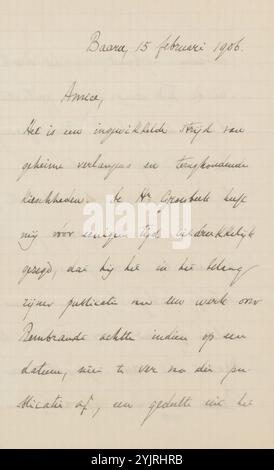 Baarn, 15 februari 1906.
Amice,
Het is een ingewikkelde strijd van
geheime verlangens en terughoudende
kieschheden. De Hr Groesbeek heeft
mij voor eenigen tijd uitdrukkelijk
gezegd, dat hij het in het belang
zijner publicatie van een werk over
Rembrandt achtte indien op een
datum, niet te ver na die pu-
blicatie af, een gedeelte uit het
alamy
Image ID: 2YJRHRB
www.alamy.com